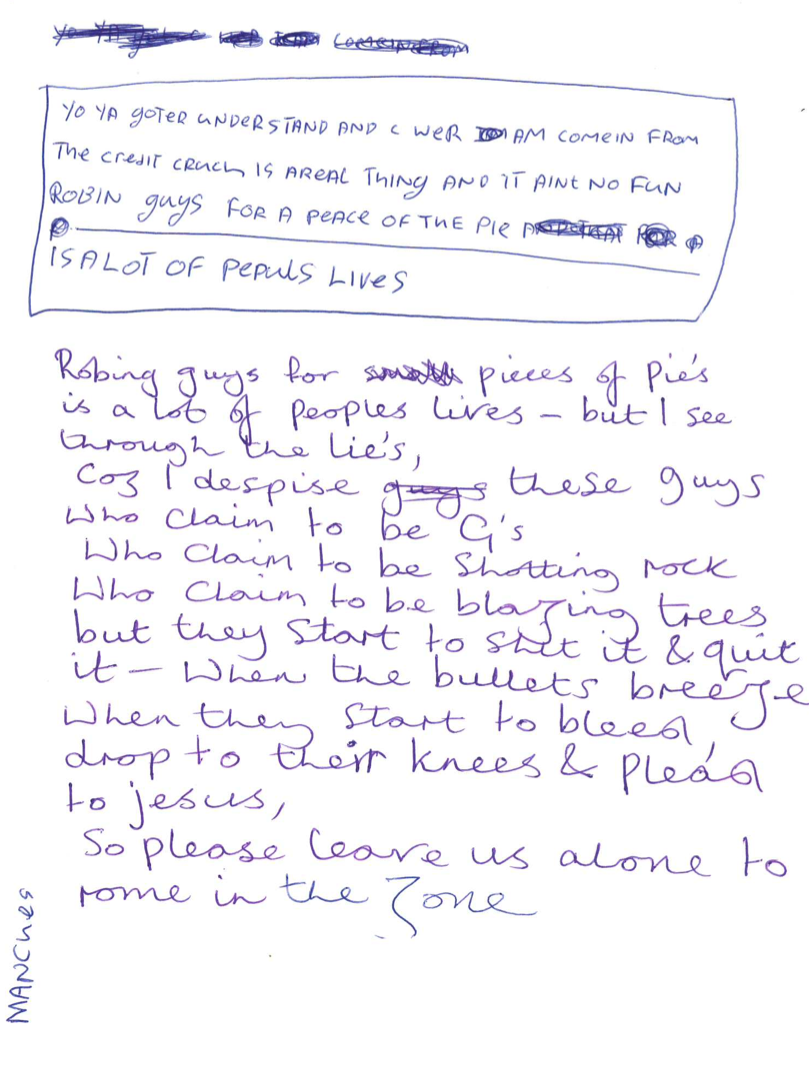 YO YA GOTER UNDERSTAND AND C WER AM COMEIN FROM
The credit cruch IS AREAL THING AND IT AINT NO FUN
ROBIN guys FOR A PEACE OF THE PIE
IS A LOT OF PEPULS LIVES
Robing guys for small pieces of Pie's
is a lot of peoples lives – but I see
through the lie's,
Coz I despise guys these guys
Who Claim to be G's
Who Claim to be Shotting rock
Who Claim to be blazing trees
but they Start to shit it & quit
it – When the bullets breeze
When they Start to bleed,
drop to their knees & Plead
to jesus,
So please leave us alone to
rome in the Zone
MANCHES